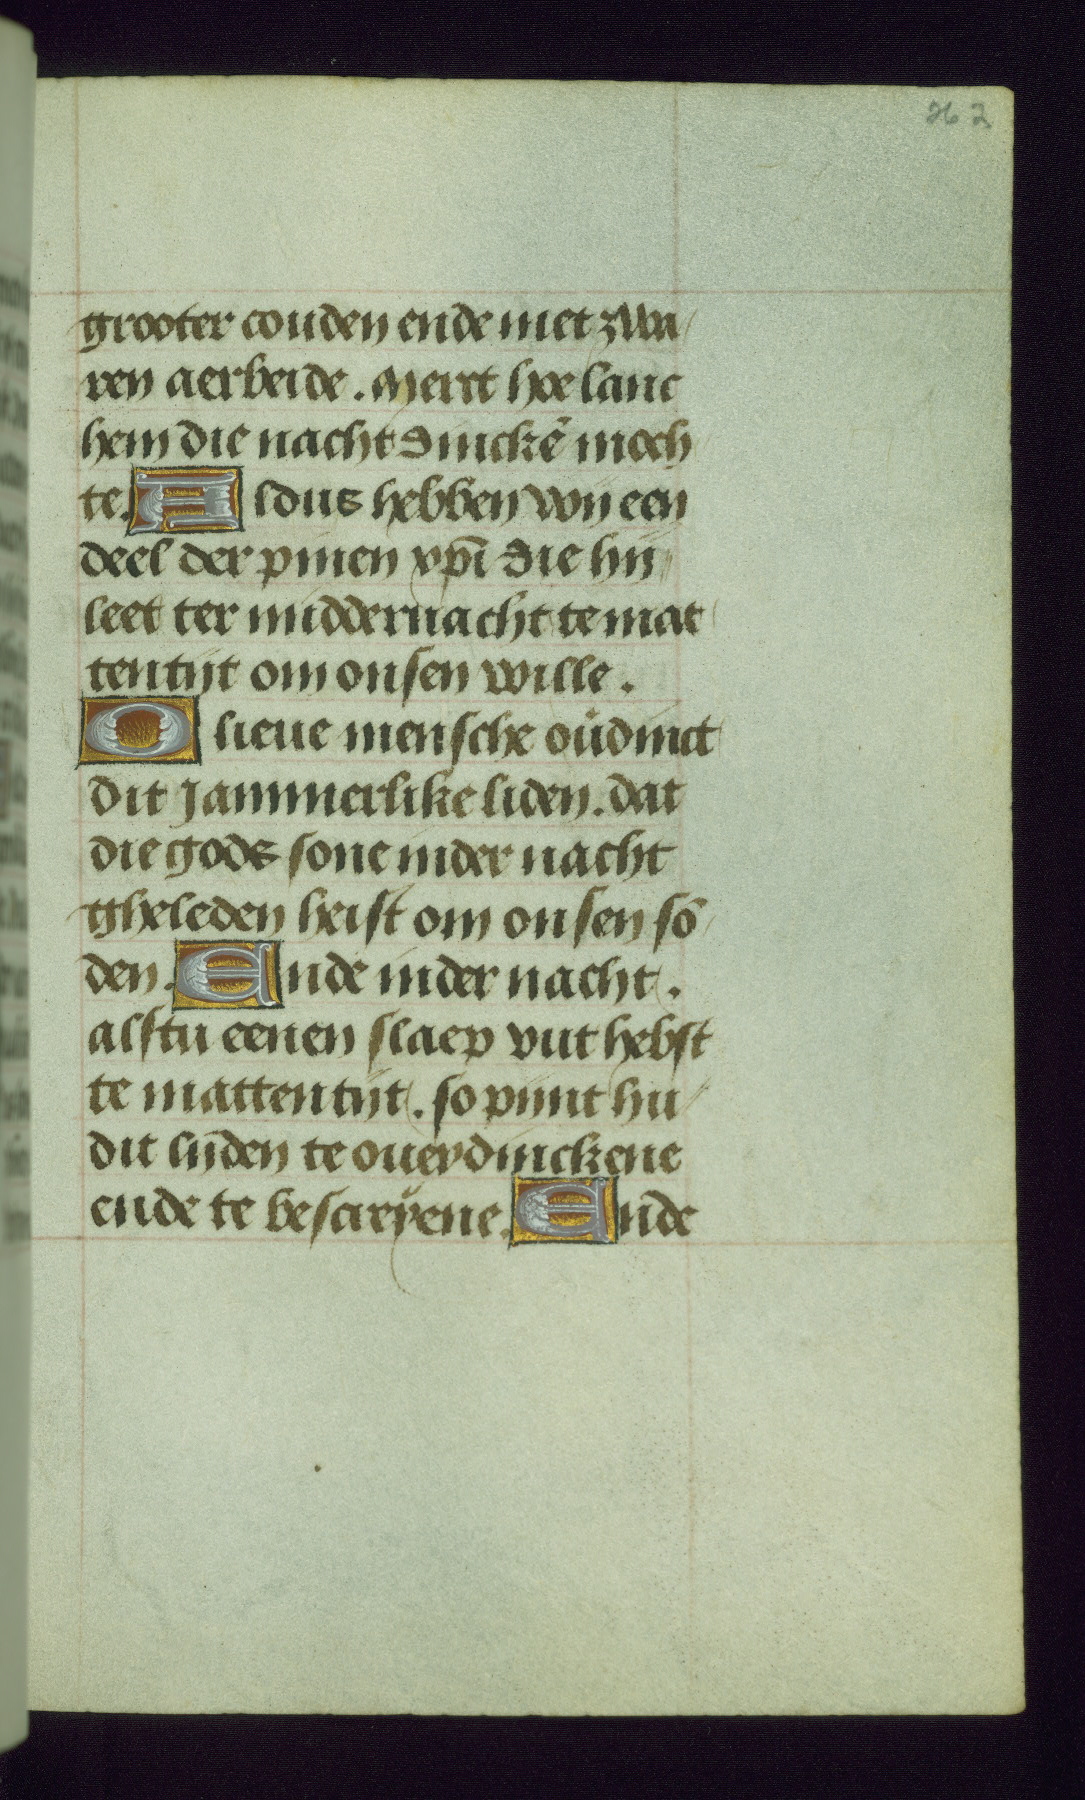 262
grooter couden ende met zwa
ren aerbeide. Merct hoe lanc
hem die nacht dincke᷉ moch
te. Aldus hebben wij een
deel der pinen xp̄i die hij
leet ter middernacht te mat
tentijt om onsen wille.
O lieue mensche ou᷑dinct
dit jammerlike liden. dat
die gods sone inder nacht
gheleden heist om onsen sō
den. Ende inder nacht.
alstu eenen slaep vut hebst
te mattentijt. so pijnt hu
dit lijden te ouerdinckene
ende te bescreyene. Ende